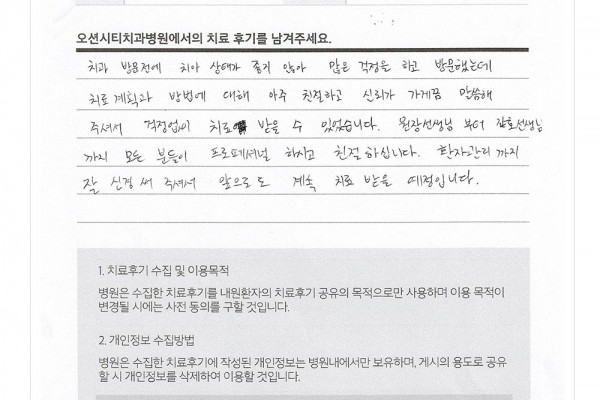 오션시티치과병원에서의 치료 후기를 남겨주세요.
치과 방용전에 치아 상태가 좋지 않아 많은 걱정을 하고 방문했는데
치료계획과 방법에 대해 아주 친절하고 신뢰가 가게끔 말씀해
주셔서 걱정없이 치료 받을 수 있었습니다. 원장선생님 부터 간호선생님
까지 모든 분들이 프로페셔널 하시고 친절하십니다. 환자관리까지
잘 신경 써 주셔서 앞으로도 계속 치료 받을 예정입니다.
1. 치료후기 수집 및 이용목적
병원은 수집한 치료후기를 내원환자의 치료후기 공유의 목적으로만 사용하며 이용 목적이
변경될 시에는 사전 동의를 구할 것입니다.
2. 개인정보 수집방법
병원은 수집한 치료후기에 작성된 개인정보는 병원내에서만 보유하며, 게시의 용도로 공유
할 시 개인정보를 삭제하여 이용할 것입니다.